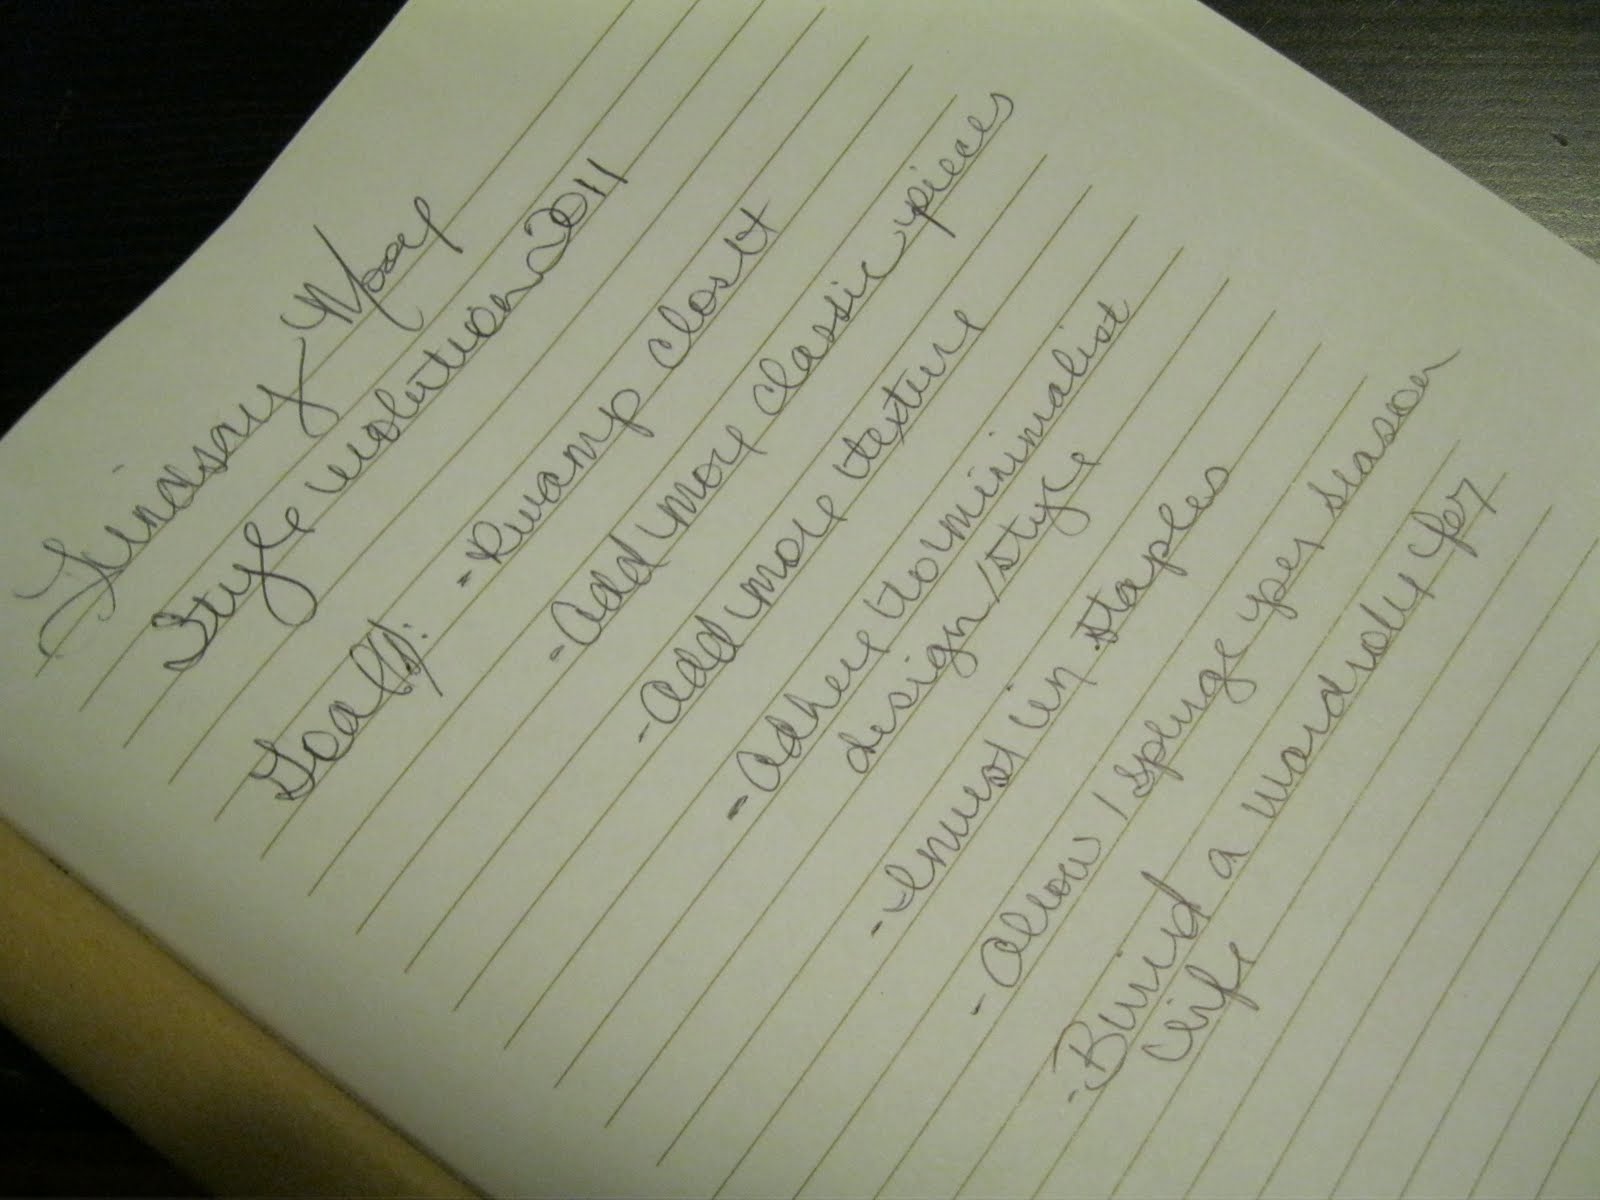 Lindsay
Style evolution 2011
Goals: - Revamp closet
- Add more classic pieces
- Add more texture
- Adhere to minimalist
design/style
- Invest in staples
- Allow 1 splurge per season
- Build a wardrobe for
life